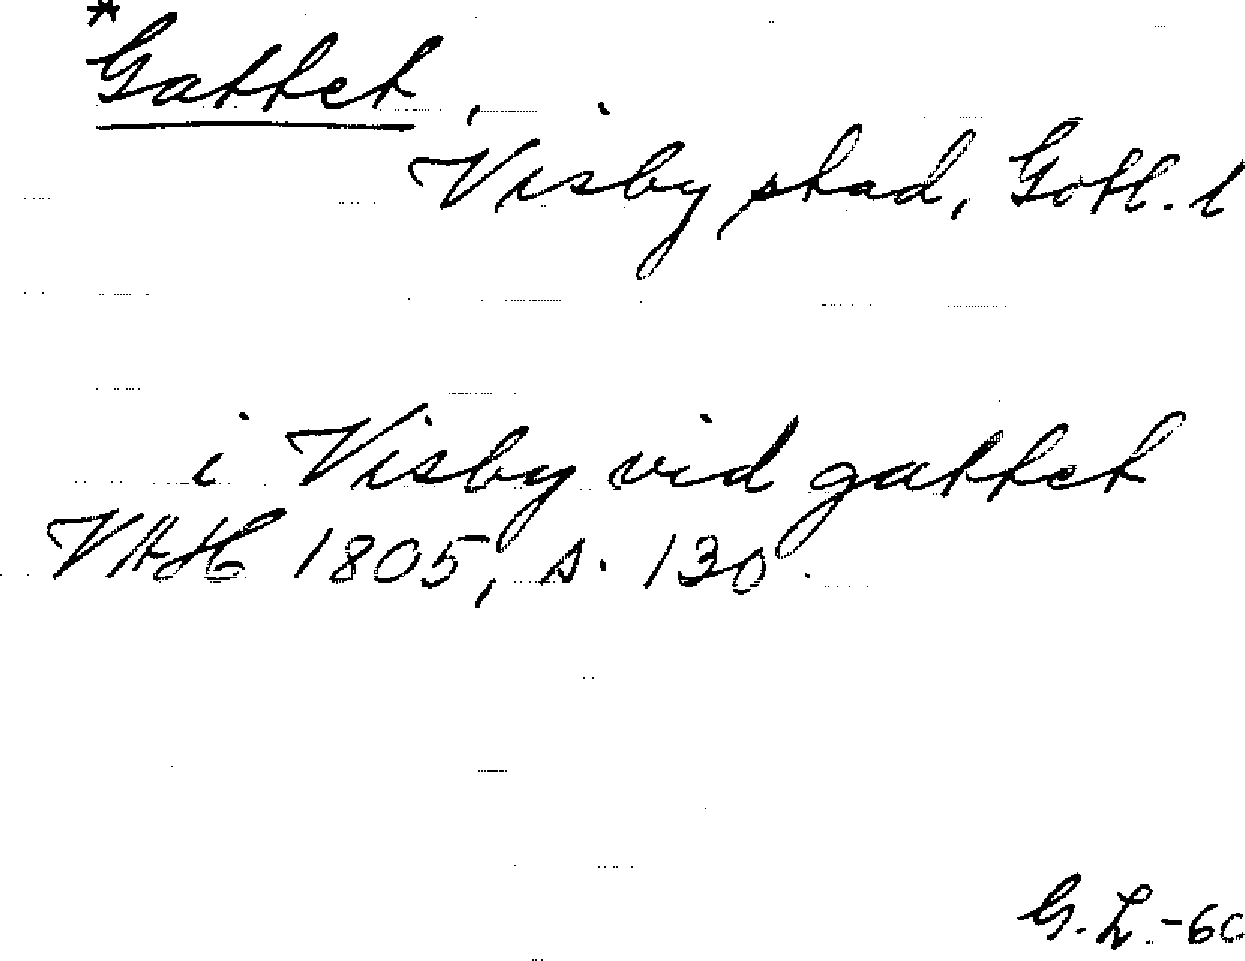 *Gattet,
Visby stad, Gotl. l
i Visby vid gattet
VAH 1805, s. 130.
G. L. -60